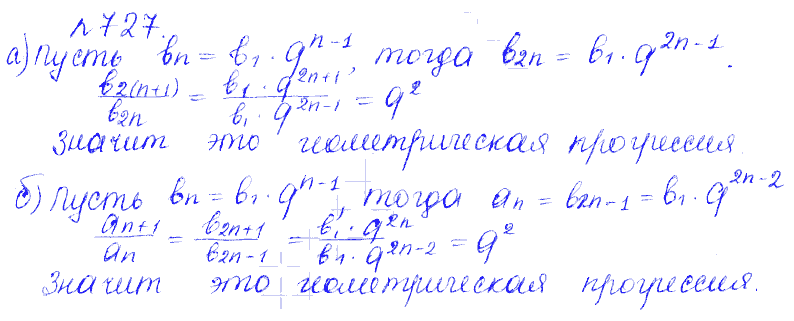 №727.
а) Пусть bₙ = b₁ · qⁿ⁻¹, тогда b₂ₙ = b₁ · q²ⁿ⁻¹.
b₂₍ₙ₊₁₎/b₂ₙ = b₁ · q²ⁿ⁺¹/b₁ · q²ⁿ⁻¹ = q²
Значит это геометрическая прогрессия.
б) Пусть bₙ = b₁ · qⁿ⁻¹, тогда aₙ = b₂ₙ₋₁ = b₁ · q²ⁿ⁻²
aₙ₊₁/aₙ = b₂ₙ₊₁/b₂ₙ₋₁ = b₁ · q²ⁿ/b₁ · q²ⁿ⁻² = q²
Значит это геометрическая прогрессия.